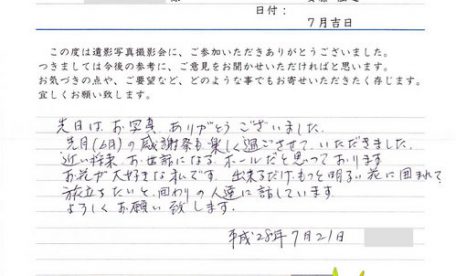 日付:
7月吉日
この度は遺影写真撮影会に、ご参加いただきありがとうございました。
つきましては今後の参考に、ご意見をお聞かせいただければと思います。
お気づきの点や、ご要望など、どのような事でもお寄せいただきたく存じます。
宜しくお願い致します。
先日は、お写真 ありがとう ございました。
先月(6月)の感謝祭も楽しく過ごさせていただきました。
近い将来 お世話になる ホールだと思っております
お花が大好きな私です。出来るだけもっと明るい花に囲まれて
旅立ちたいと、回わりの人達に話しています。
よろしくお願い致します。
平成28年7月21日